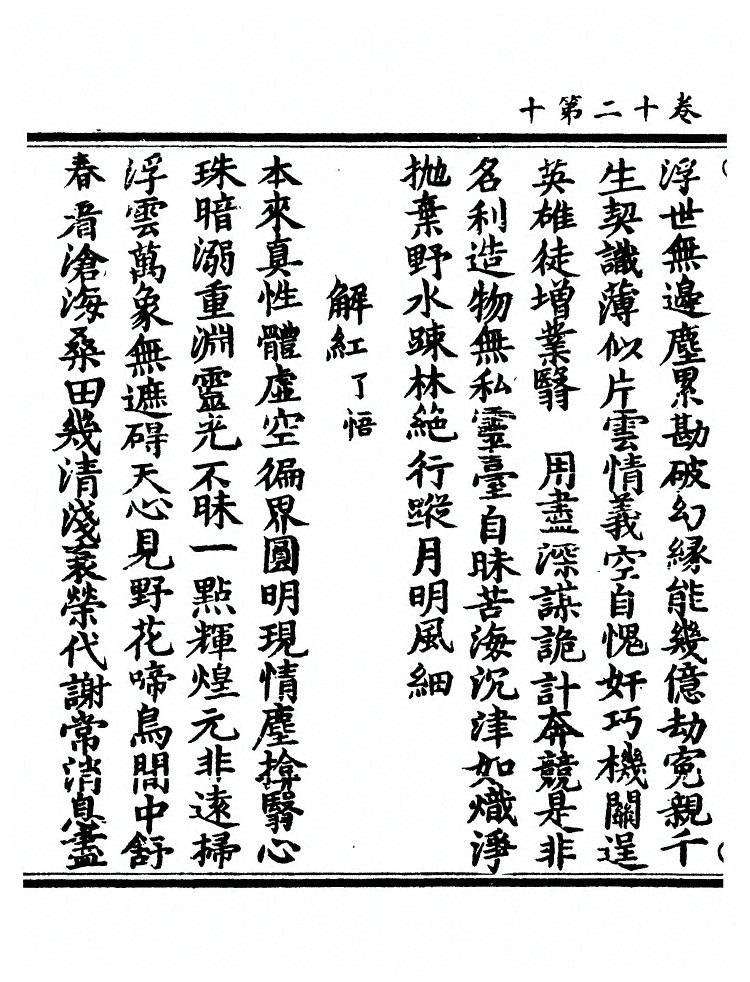 卷十二第十
浮世無邊塵累勘破幻緣能幾億劫寃親千
生契讖薄似片雲情義空自愧奸巧機關逞
英雄徒增業翳　用盡深謀詭計奔競是非
名利造物無私靈臺自昧苦海沉津如熾淨
抛棄野水踈林絕行蹤月明風細
解紅了悟
本來真性體虛空徧界圓明現情塵揜翳心
珠暗溺重淵靈光不昧一點輝煌元非遠掃
浮雲萬象無遮碍天心見野花啼鳥間中舒
春看滄海桑田幾清淺衰榮代謝常消息盡